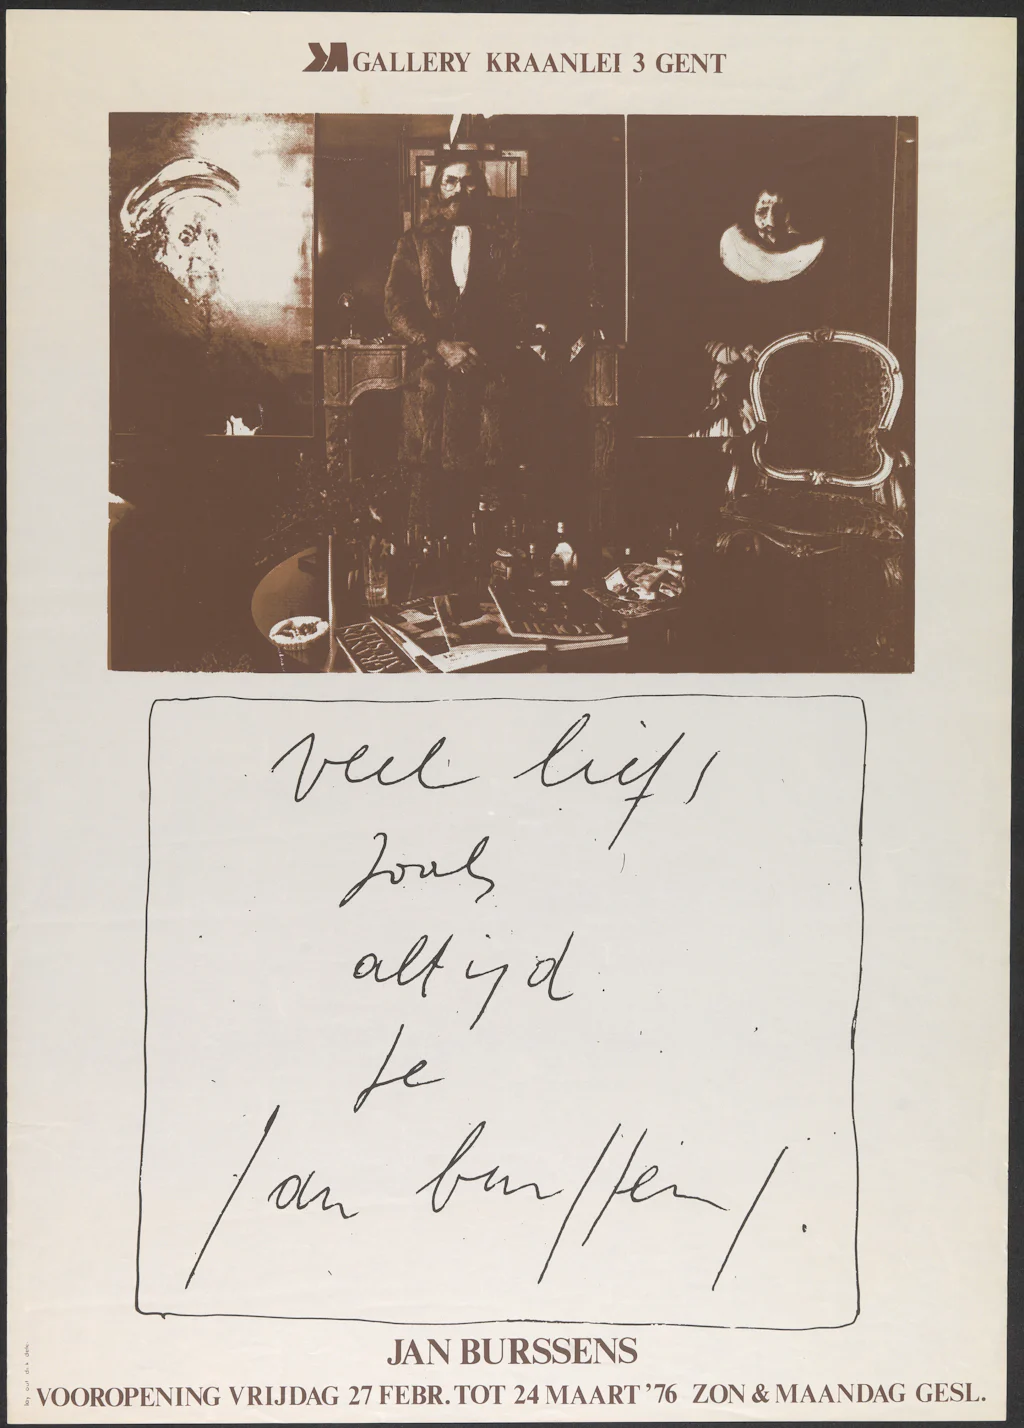 GALLERY KRAANLEI 3 GENT
veel liefs
zoals
altijd
je
Jan burssens.
JAN BURSSENS
VOOROPENING VRIJDAG 27 FEBR. TOT 24 MAART '76 ZON & MAANDAG GESL.